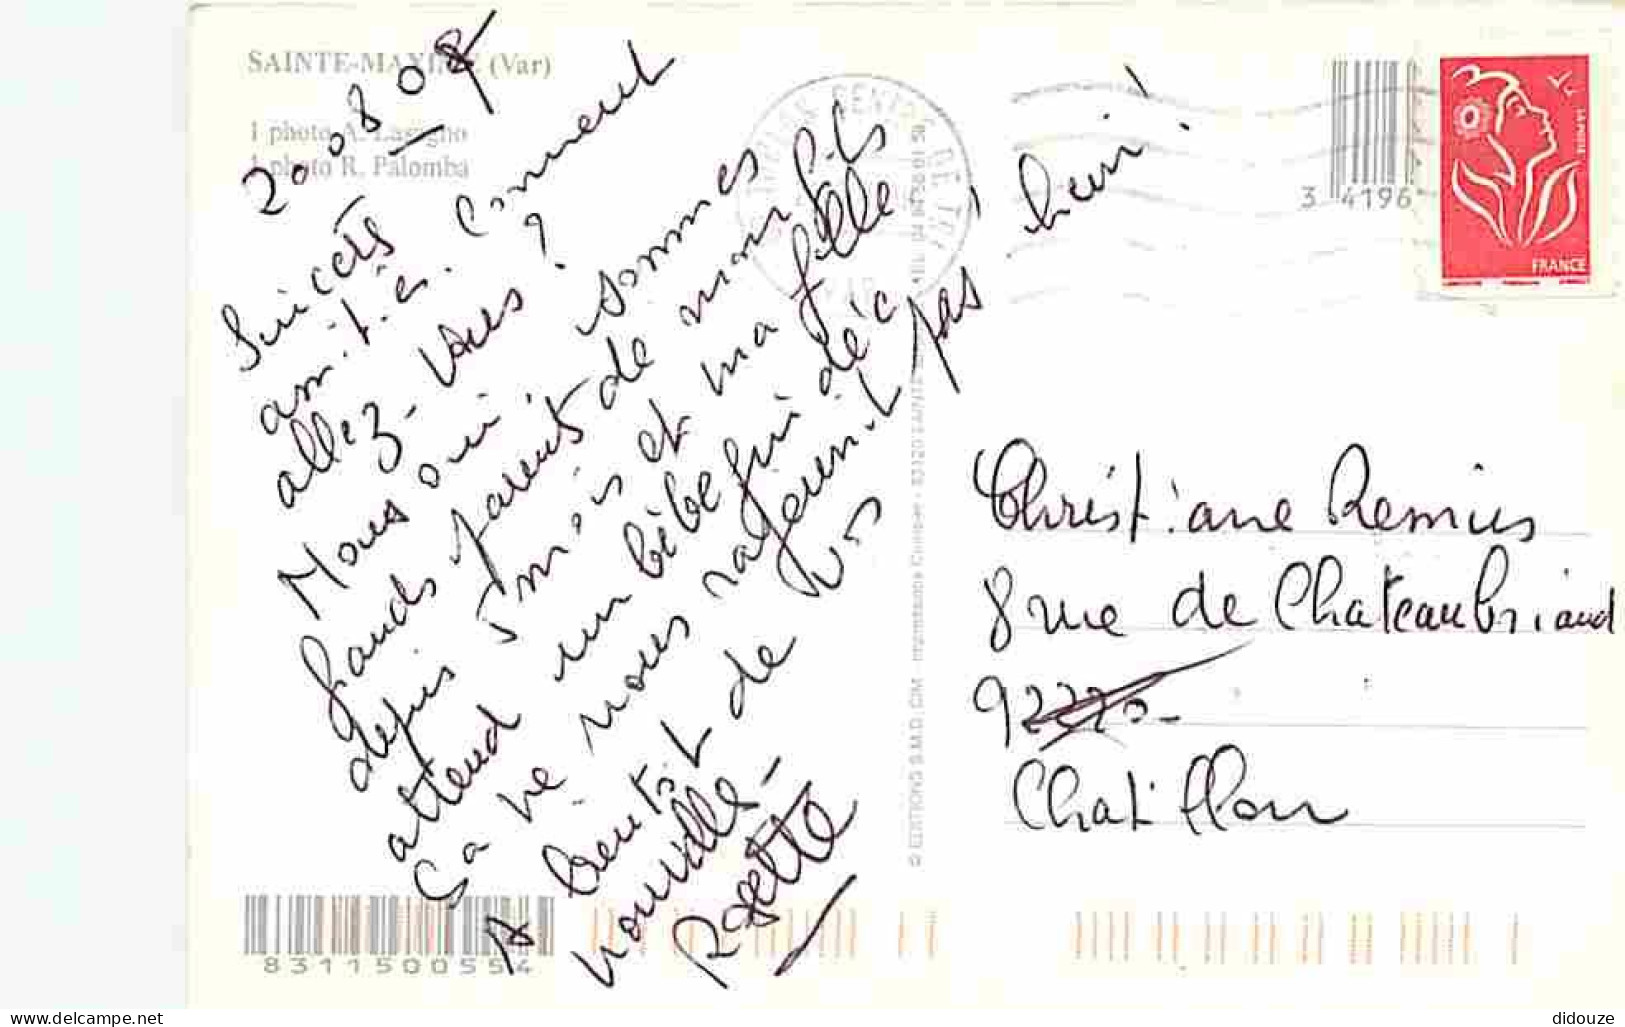 SAINTE-MAXIME (Var)
1 photo A. Lasigno
1 photo R. Palomba
20 08 07
Sincères
amitiés. Comment
allez-vous ?
Nous oui, sommes
grands parents de mon fils
depuis 5 mois et ma fille
attend un bébé fin déc
ça ne nous rajeunit pas hein !
A bientôt de vos
nouvelles -
Rosette
© EDITIONS S.M.D. CIM - Imprimerie Combier - 83120 SAINTE
3 4196
FRANCE
Christiane Remius
8 rue de Chateaubriand
Chatillon
8311500554
www.delcampe.net
didouze